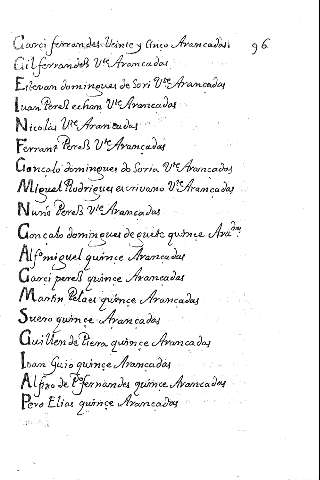 Garci ferrandes Veinte y Cinco Arancadas. 96
Gil ferrandes Vte Arancadas
Estevan domingues de Sori Vte Arancadas
Iuan Peres echan Vte Arancadas
Nicolas Vte Arancadas
Ferrant Peres Vte Arancadas
Gonçalo domingues de Soria Vte Arancadas
Miguel Rodrigues escrivano Vte Arancadas
Nuño Peres Vte Arancadas
Gonçalo domingues de quinçe Aradas
Alfo miguel quinçe Arancadas
Garci peres quinçe Arancadas
Martin Pelaes quinçe Arancadas
Suero quinçe Arancadas
Guillen de Piera quinçe Arancadas
Iuan Guio quinçe Arancadas
de Po fernandes quinçe Arancadas
Pero Elias quinçe Arancadas